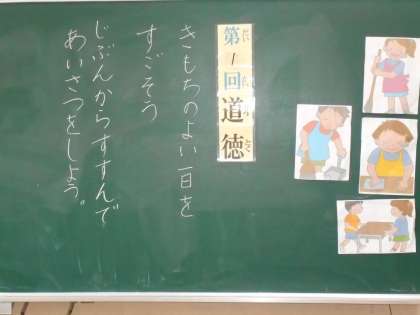 第1回道徳
きもちのよい一日を
すごそう
じぶんからすすんで
あいさつをしよう。